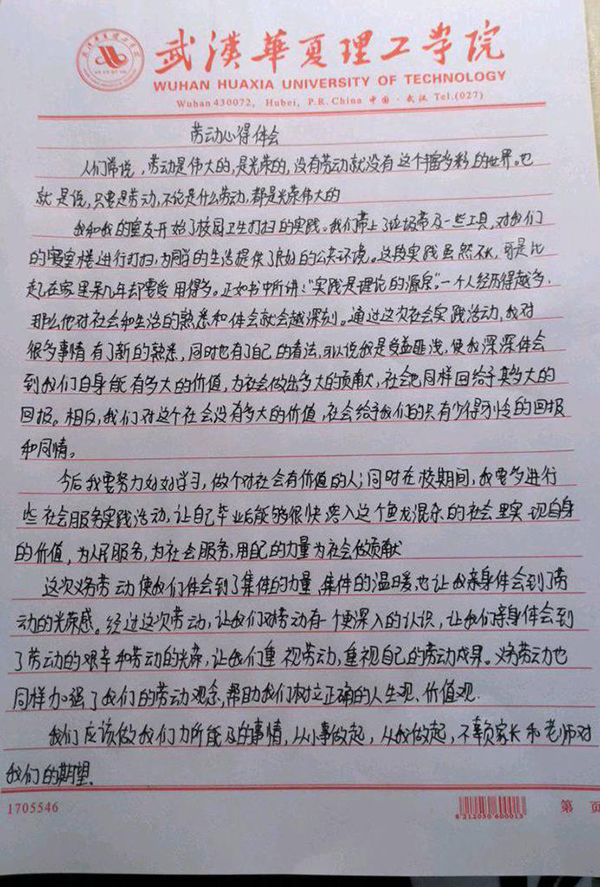 武漢華夏理工学院
WUHAN HUAXIA UNIVERSITY OF TECHNOLOGY
Wuhan 430072, Hubei, P.R. China 中国·武汉 Tel.(027)
劳动心得体会
人们常说，劳动是伟大的，是光荣的，没有劳动就没有这个多彩的世界。也
就是说，只要是劳动，不论是什么劳动，都是光荣伟大的
我和我的室友开始了校园卫生打扫的实践。我们带上了垃圾带及一些工具，对我们
的寝室楼进行打扫，为同学的生活提供了良好的公共环境。这段实践虽然不长，可是比
起在家里呆几年却要受用得多。正如书中所讲："实践是理论的源泉"。一个人经历得越多，
那么他对社会和生活的熟悉和体会就会越深刻。通过这次社会实践活动，我对
很多事情有了新的熟悉，同时也有了自己的看法，可以说我是受益匪浅，使我深深体会
到我们自身能有多大的价值，为社会做出多大的贡献，社会也同样回给予其多大的
回报。相反，我们对这个社会没有多大的价值，社会给予我们的只有少得可怜的回报
和同情。
今后我要努力好好学习，做个对社会有价值的人；同时在校期间，我要多进行
些社会服务实践活动，让自己毕业后能够很快容入这个鱼龙混杂的社会里实现自身
的价值，为人民服务，为社会服务，用自己的力量为社会做贡献
这次义务劳动使我们体会到了集体的力量、集体的温暖，也让我亲身体会到了劳
动的光荣感。经过这次劳动，让我们对劳动有一个更深入的认识，让我们亲身体会到
了劳动的艰辛和劳动的光荣，让我们重视劳动，重视自己的劳动成果。义务劳动也
同样加强了我们的劳动观念，帮助我们树立正确的人生观、价值观.
我们应该做我们力所能及的事情，从小事做起，从我做起，不辜负家长和老师对
我们的期望.
1705546
6 212050 600013
第 页